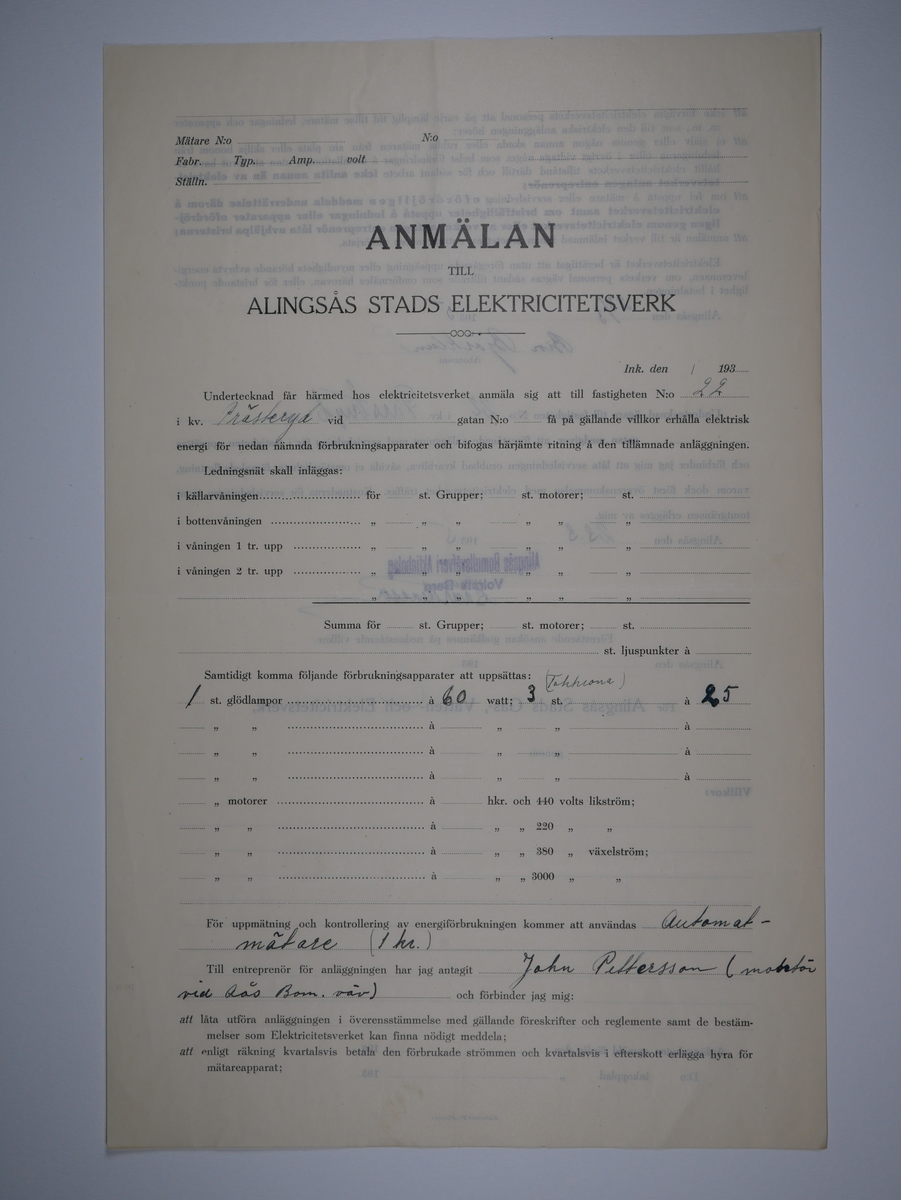 Mätare N:o N:o
Fabr. Typ. Amp. volt
Ställn.
ANMÄLAN
TILL
ALINGSÅS STADS ELEKTRICITETSVERK
Ink. den / 193
Undertecknad får härmed hos elektricitetsverket anmäla sig att till fastigheten N:o 22
i kv. Prästeryd vid gatan N:o få på gällande villkor erhålla elektrisk
energi för nedan nämnda förbrukningsapparater och bifogas härjämte ritning å den tillämnade anläggningen.
Ledningsnät skall inläggas:
i källarvåningen för st. Grupper; st. motorer; st.
i bottenvåningen „ „ „ „ „ „
i våningen 1 tr. upp „ „ „ „ „ „
i våningen 2 tr. upp „ „ „ „ „ „
„ „ „ „ „ „
Summa för st. Grupper; st. motorer; st.
st. ljuspunkter à
Samtidigt komma följande förbrukningsapparater att uppsättas:
1 st. glödlampor à 60 watt; 3 st. à 25
„ „ à „ „ à
„ „ à „ „ à
„ „ à „ „ à
„ motorer à hkr. och 440 volts likström;
„ „ à „ „ 220 „ „
„ „ à „ „ 380 „ växelström;
„ „ à „ „ 3000 „ „
För uppmätning och kontrollering av energiförbrukningen kommer att användas Automat-
mätare (1 hr.)
Till entreprenör för anläggningen har jag antagit John Pettersson (montör
vid Aås Bom. väv) och förbinder jag mig:
att låta utföra anläggningen i överensstämmelse med gällande föreskrifter och reglemente samt de bestäm-
melser som Elektricitetsverket kan finna nödigt meddela;
att enligt räkning kvartalsvis betala den förbrukade strömmen och kvartalsvis i efterskott erlägga hyra för
mätareapparat;